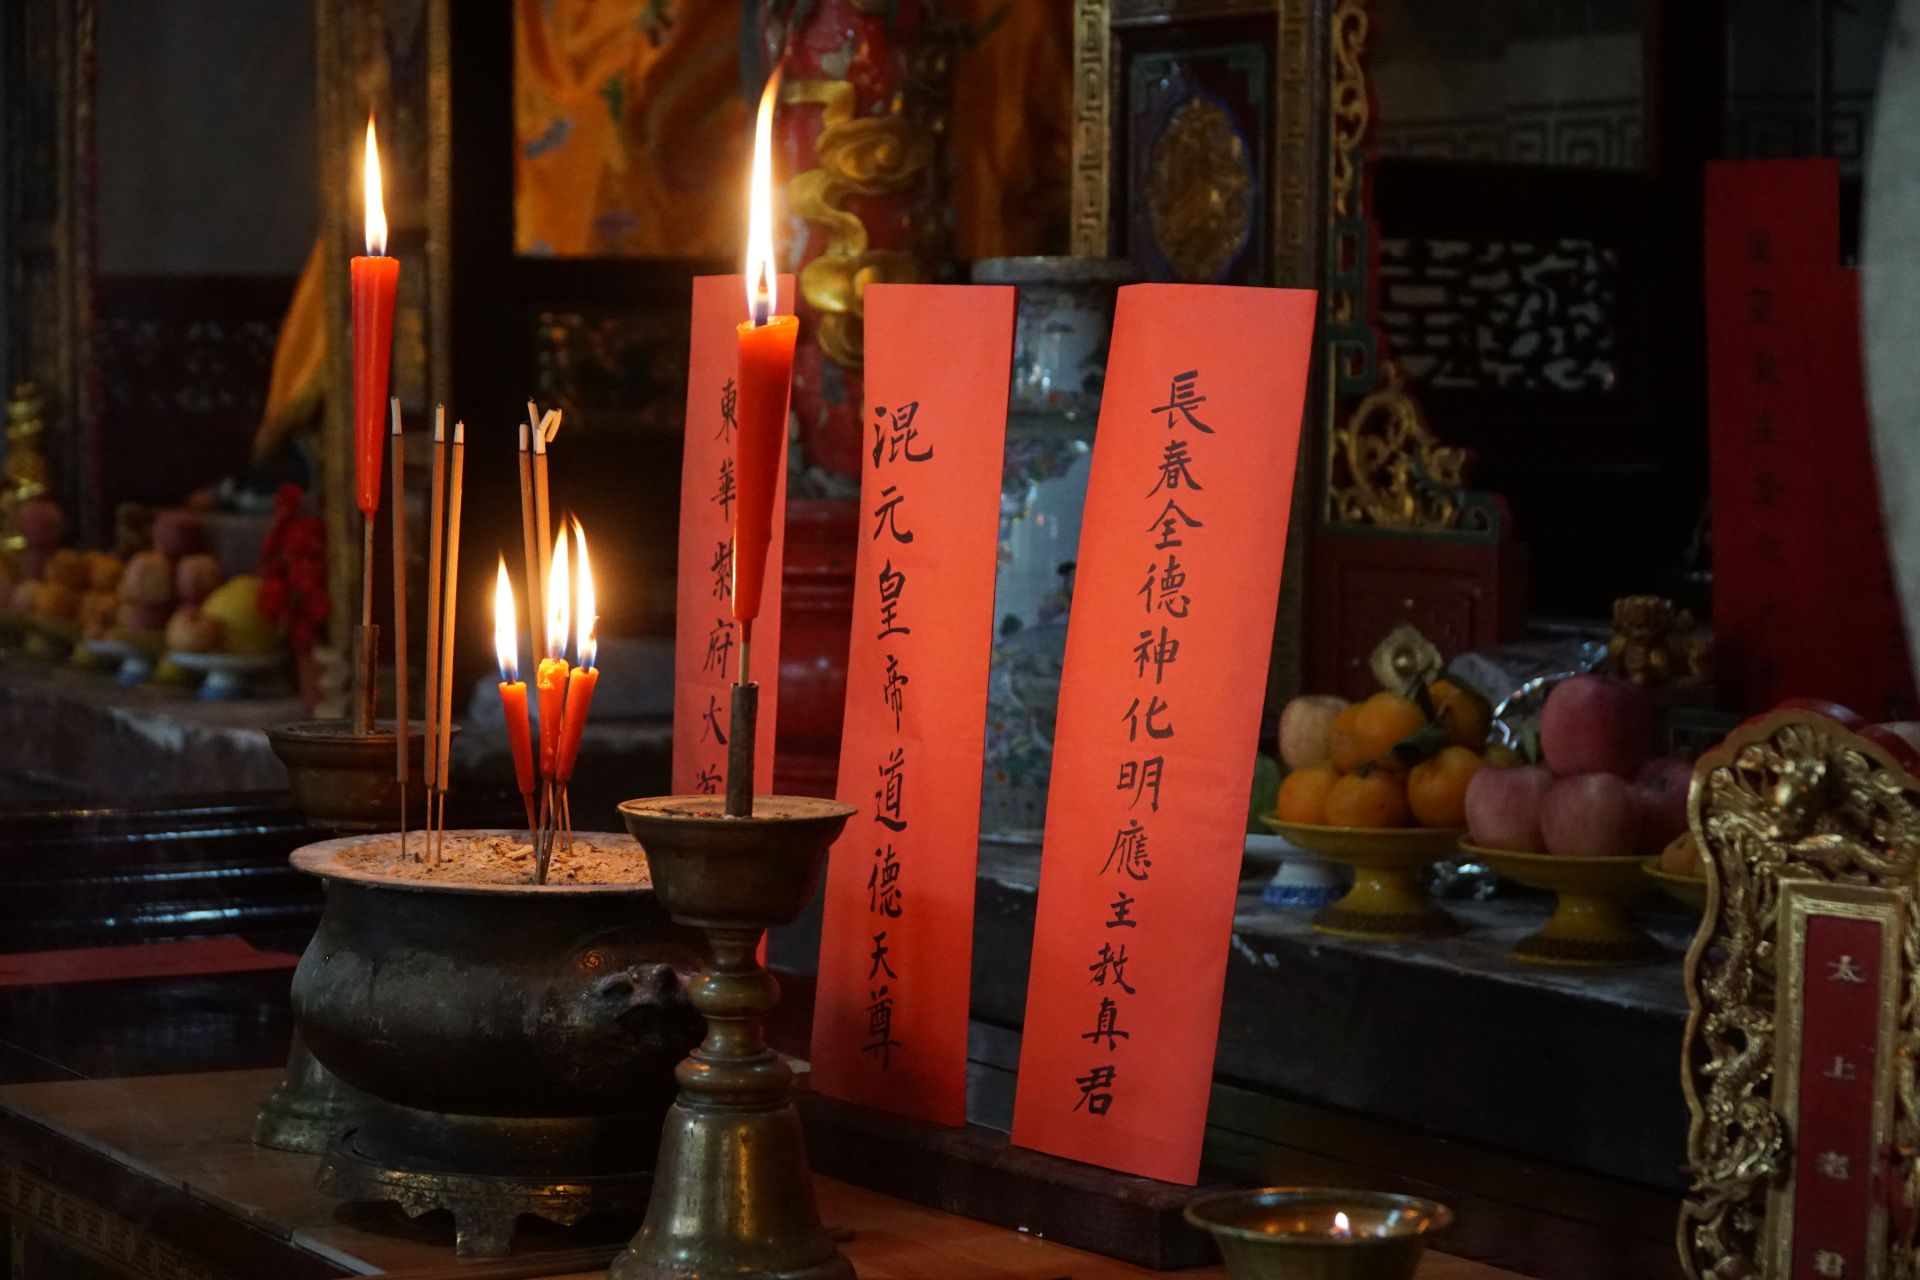 東華紫府火
混元皇帝道德天尊
長春全德神化明應主教真君
太上老君